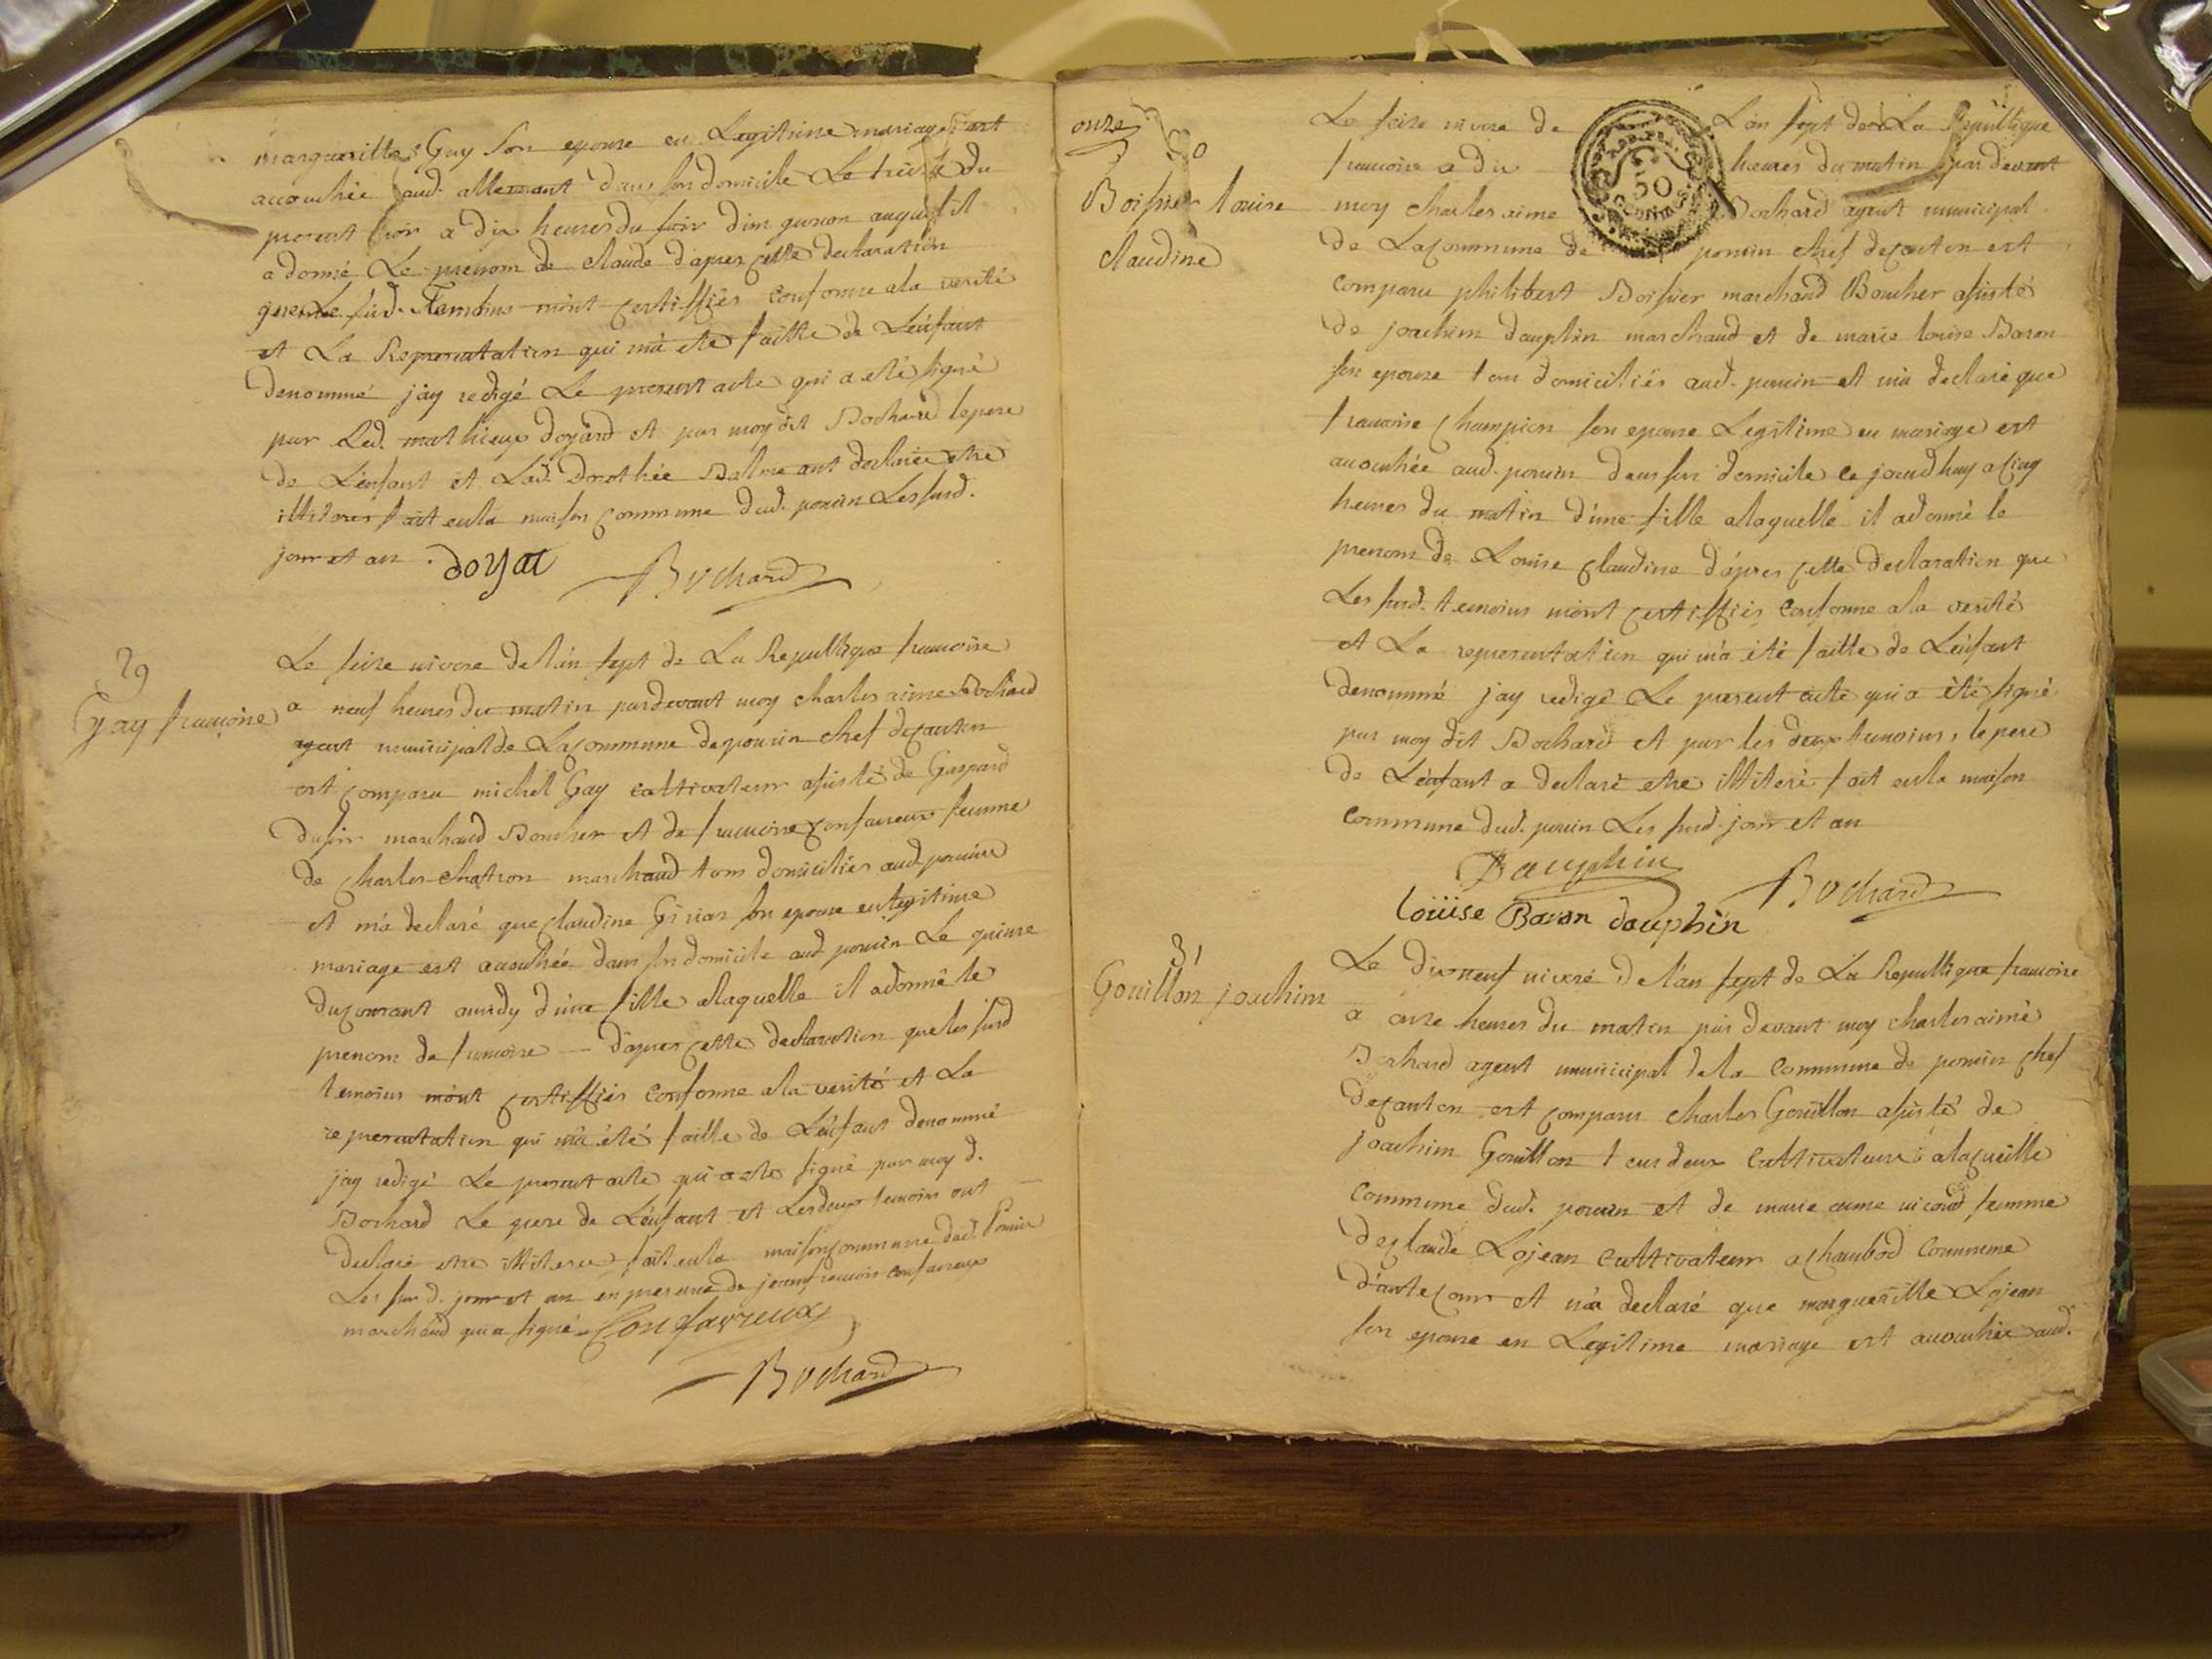 margueritte Gay son epouse en Legitime mariage est
accouchée aud. allement dans son domicile Le treise du
present mois a dix heures du soir d'un garcon auquel il
a donné Le prenom de claude d'apres cette declaration
que Les susd. Temoins m'ont certiffiés conforme a la verité
et La Representation qui m'a eté faitte de L'enfant
denommé j'ay redigé Le present acte qui a eté signé
par Led. mathieux doyard et par moy dit Bochard le pere
de L'enfant et Lad. Drothée Balme ont declaré etre
illiteres fait en la maison commune dud. poncin Les susd.
jour et an . doyat
Bochard
29
Gay francoise
Le seise nivose de l'an sept de La Republique francoise
a neuf heures du matin pardevant moy charles aime Bochard
agent municipal de La commune de poncin chef de canton
est comparu michel Gay cultivateur assisté de Gaspard
marchand Boucher et de francoise confavreux femme
de charles chatron marchand tous domiciliés aud. poncin
et m'a declaré que claudine son epouse en legitime
mariage est accouchée dans son domicile aud poncin Le quinse
du courant a midy d'une fille a laquelle il a donné le
prenom de francoise — d'apres cette declaration que les susd
temoins m'ont certiffiés conforme a la verité et La
representation qui m'a été faitte de L'enfant denommé
j'ay redigé Le present acte qui a ete signé par moy d.
Bochard Le pere de L'enfant et Les deux temoins ont —
declaré etre illiteres fait en la maison commune dud. Poncin
Les susd. jour et an en presence de jean francois confavreux
marchand qui a signé Confavreux
Bochard
onze
30
Boissier louise
claudine
Le seise nivose de L'an sept de La Republique
francoise a dix heures du matin par devant
50
centimes
moy charles aime Bochard agent municipal
de La commune de poncin chef de canton est
comparu philibert Boissier marchand Boucher assisté
de joachim dauphin marchand et de marie louise Baron
son epouse tous domiciliés aud. poncin et m'a declaré que
francoise Champion son epouse Legitime en mariage est
accouchée aud. poncin dans son domicile ce jourd'huy a cinq
heures du matin d'une fille a laquelle il a donné le
prenom de Louise Claudine d'apres cette declaration que
Les susd. temoins m'ont certiffiés conforme a la verité
et La representation qui m'a été faitte de L'enfant
denommé j'ay redigé Le present acte qui a été signé
par moy dit Bochard et par les deux temoins, le pere
de L'enfant a declaré etre illiteré fait en la maison
commune dud. poncin Les susd. jour et an
Dauphin
Bochard
louise Baron dauphin
31
Gouillon joachim
Le dix neuf nivose de l'an sept de La Republique francoise
a onze heures du matin par devant moy charles aimé
Bochard agent municipal de la commune de poncin chef
de canton est comparu charles Gouillon assisté de
joachim Gouillon tous deux cultivateurs a lacueille
commune dud. poncin et de marie anne nicoud femme
de claude Lojean cultivateur a chambod commune
d'autecour et m'a declaré que margueritte Lojean
son epouse en Legitime mariage est accouchée aud.